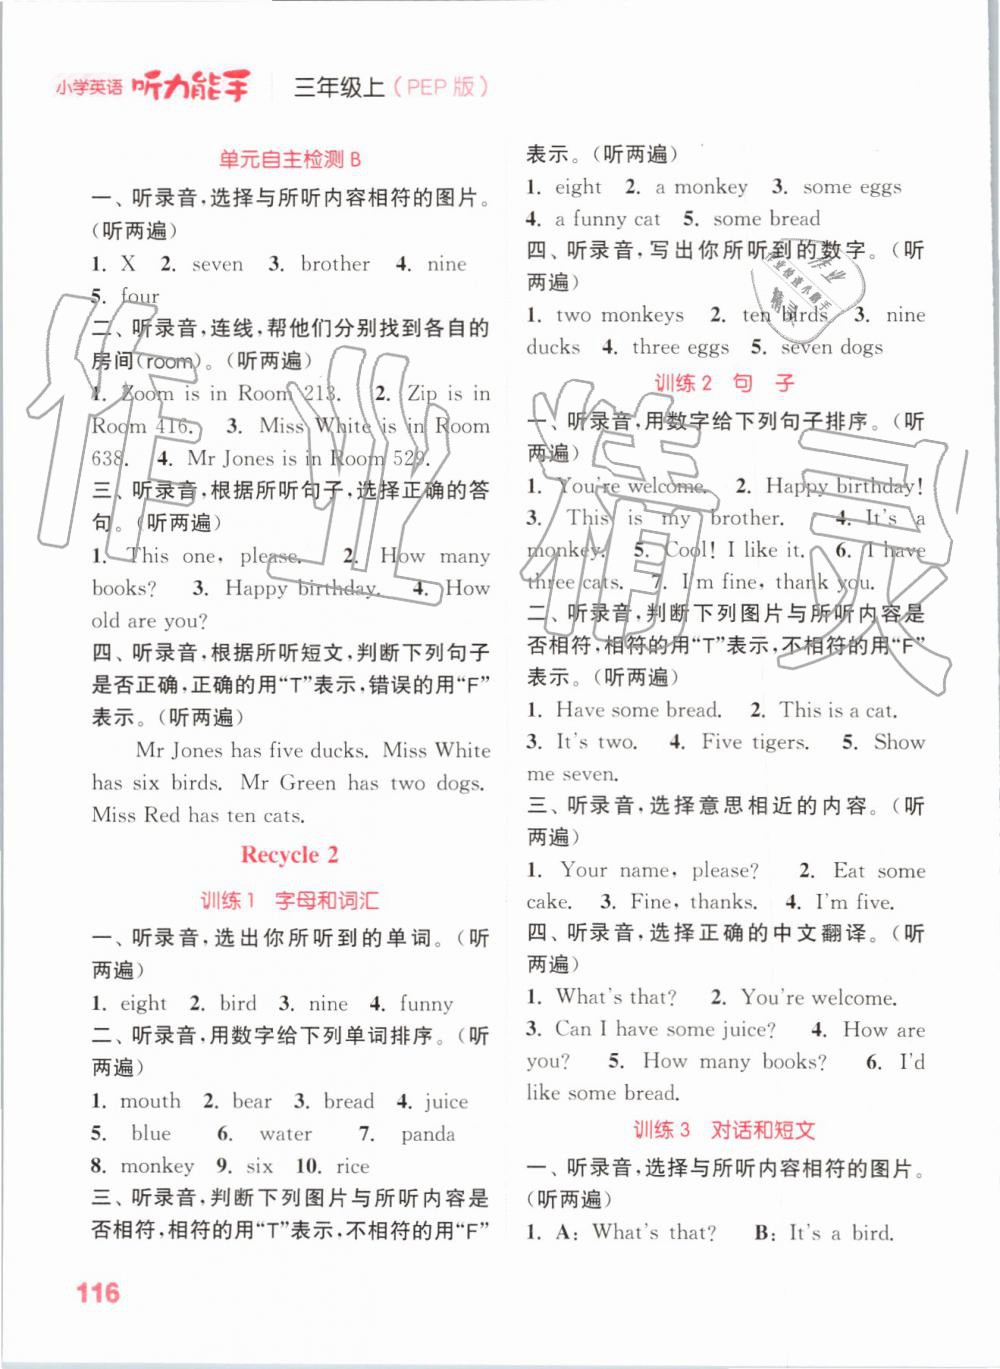 小学英语 听力能手 三年级上(PEP版)
单元自主检测B
一、听录音,选择与所听内容相符的图片。
(听两遍)
1. X 2. seven 3. brother 4. nine
5. four
二、听录音,连线,帮他们分别找到各自的
房间(room)。(听两遍)
1. Zoom is in Room 213. 2. Zip is in
Room 416. 3. Miss White is in Room
638. 4. Mr Jones is in Room 529.
三、听录音,根据所听句子,选择正确的答
句。(听两遍)
1. This one, please. 2. How many
books? 3. Happy birthday. 4. How
old are you?
四、听录音,根据所听短文,判断下列句子
是否正确,正确的用“T”表示,错误的用“F”
表示。(听两遍)
Mr Jones has five ducks. Miss White
has six birds. Mr Green has two dogs.
Miss Red has ten cats.
Recycle 2
训练1 字母和词汇
一、听录音,选出你所听到的单词。(听
两遍)
1. eight 2. bird 3. nine 4. funny
二、听录音,用数字给下列单词排序。(听
两遍)
1. mouth 2. bear 3. bread 4. juice
5. blue 6. water 7. panda
8. monkey 9. six 10. rice
三、听录音,判断下列图片与所听内容是
否相符,相符的用“T”表示,不相符的用“F”
表示。(听两遍)
1. eight 2. a monkey 3. some eggs
4. a funny cat 5. some bread
四、听录音,写出你所听到的数字。(听
两遍)
1. two monkeys 2. ten birds 3. nine
ducks 4. three eggs 5. seven dogs
训练2 句 子
一、听录音,用数字给下列句子排序。(听
两遍)
1. You're welcome. 2. Happy birthday!
3. This is my brother. 4. It's a
monkey. 5. Cool! I like it. 6. I have
three cats. 7. I'm fine, thank you.
二、听录音,判断下列图片与所听内容是
否相符,相符的用“T”表示,不相符的用“F”
表示。(听两遍)
1. Have some bread. 2. This is a cat.
3. It's two. 4. Five tigers. 5. Show
me seven.
三、听录音,选择意思相近的内容。(听
两遍)
1. Your name, please? 2. Eat some
cake. 3. Fine, thanks. 4. I'm five.
四、听录音,选择正确的中文翻译。(听
两遍)
1. What's that? 2. You're welcome.
3. Can I have some juice? 4. How are
you? 5. How many books? 6. I'd
like some bread.
训练3 对话和短文
一、听录音,选择与所听内容相符的图片。
(听两遍)
1. A: What's that? B: It's a bird.
116
作业精灵